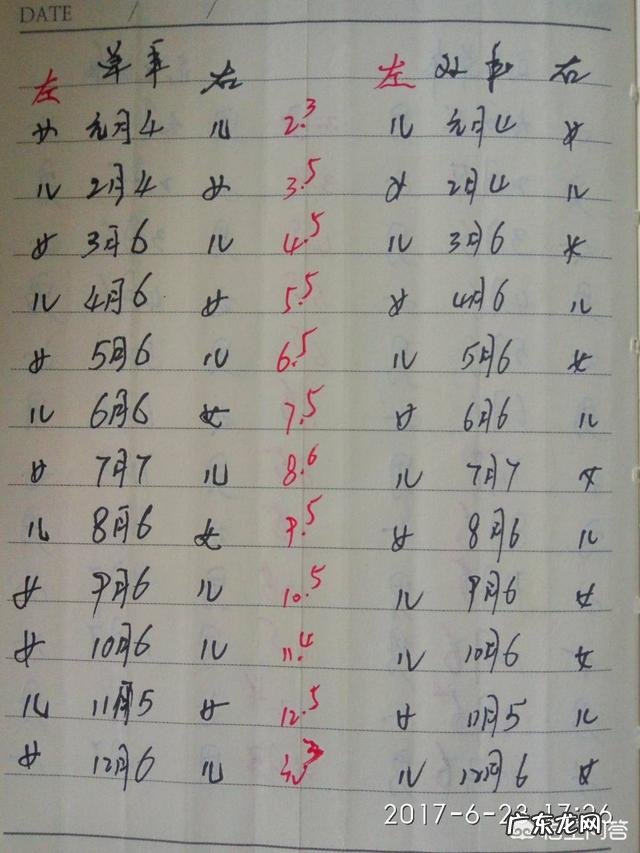 DATE / /
左 单年 右 左 双年 右
女 元月4 儿 2.3 儿 元月4 女
儿 2月4 女 3.5 女 2月4 儿
女 3月6 儿 4.5 儿 3月6 女
儿 4月6 女 5.5 女 4月6 儿
女 5月6 儿 6.5 儿 5月6 女
儿 6月6 女 7.5 女 6月6 儿
女 7月7 儿 8.6 儿 7月7 女
儿 8月6 女 9.5 女 8月6 儿
女 9月6 儿 10.5 儿 9月6 女
女 10月6 儿 11.4 儿 10月6 女
儿 11月5 女 12.5 女 11月5 儿
女 12月6 儿 儿 12月6 女
2017-6-28 17:26
广东龙网